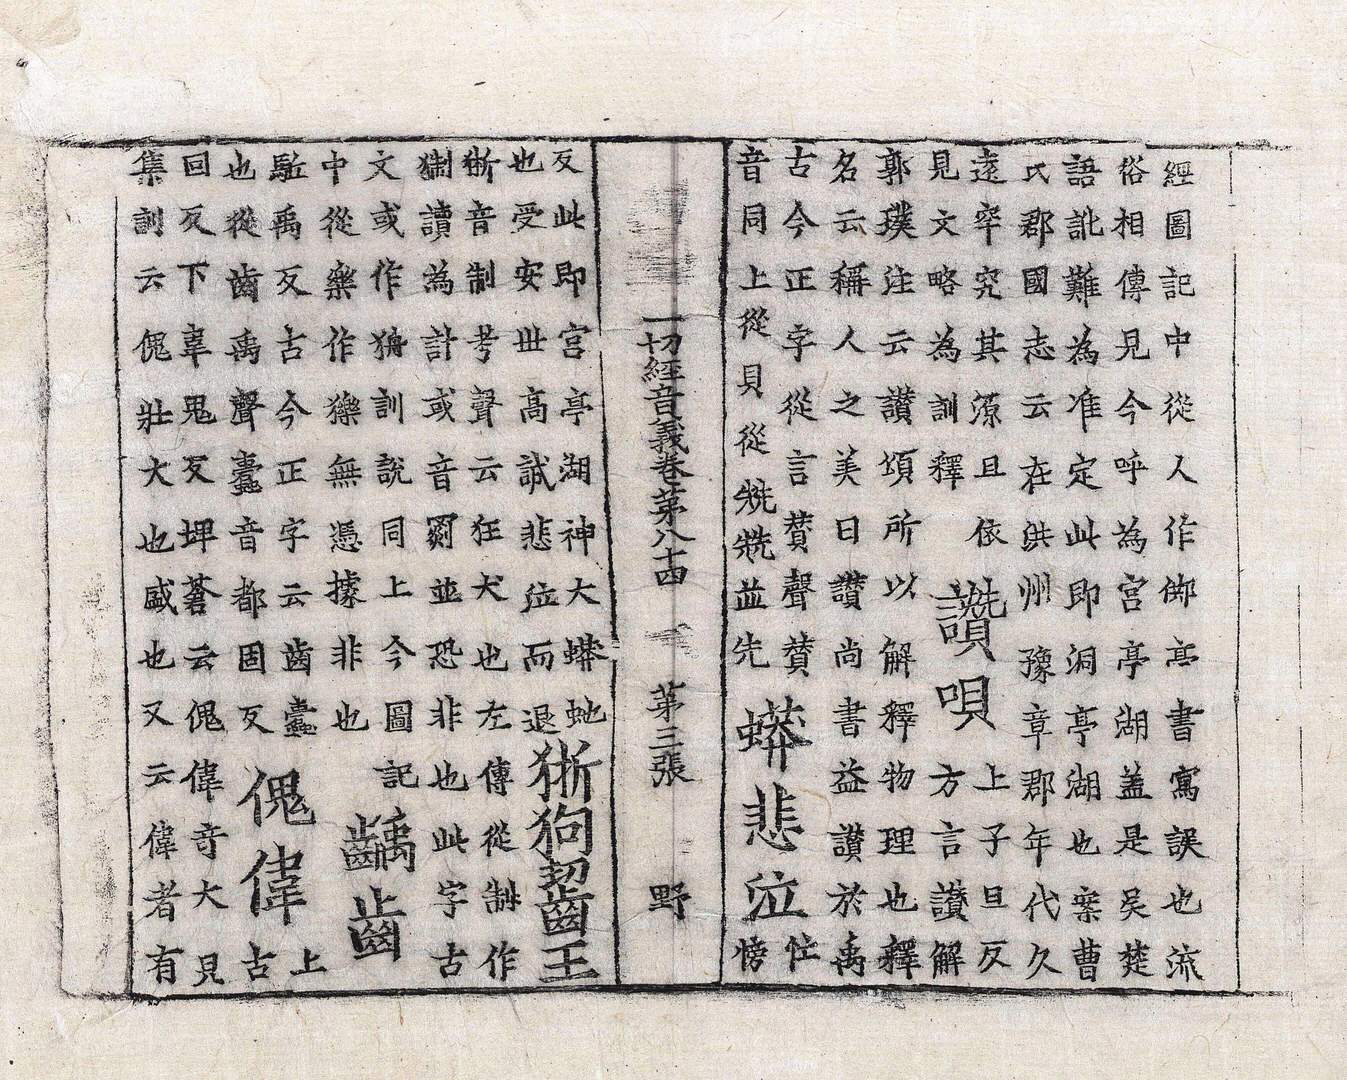 經圖記中從人作御亭書寫誤也流
俗相傳見今呼為宮亭湖盖是吳楚
語訛難為准定此即洞亭湖也案曹
氏郡國志云在洪州豫章郡年代久
遠罕究其源且依
見文略為訓釋
讚唄
上子旦反
方言讃解
郭璞注云讃頌所以解釋物理也釋
名云稱人之美曰讃尚書益讃於禹
古今正字從言賛聲賛
音同上從貝從兟兟並先
蟒悲泣
忙
傍
一切經音義卷第八十四 第三張 野
反此即宮亭湖神大蟒虵
也受安世高試悲泣而退
狾狗齧王
狾音制考聲云狂犬也左傳從制作
猘讀為計或音罽並恐非也此字古
文或作訓說同上今圖記
中從樂作無憑據非也
齲齒
上
駈禹反古今正字云齒蠹
也從齒禹聲蠹音都固反
傀偉
古
回反下韋鬼反埤蒼云傀偉奇大見
集訓云傀壯大也盛也又云偉者有